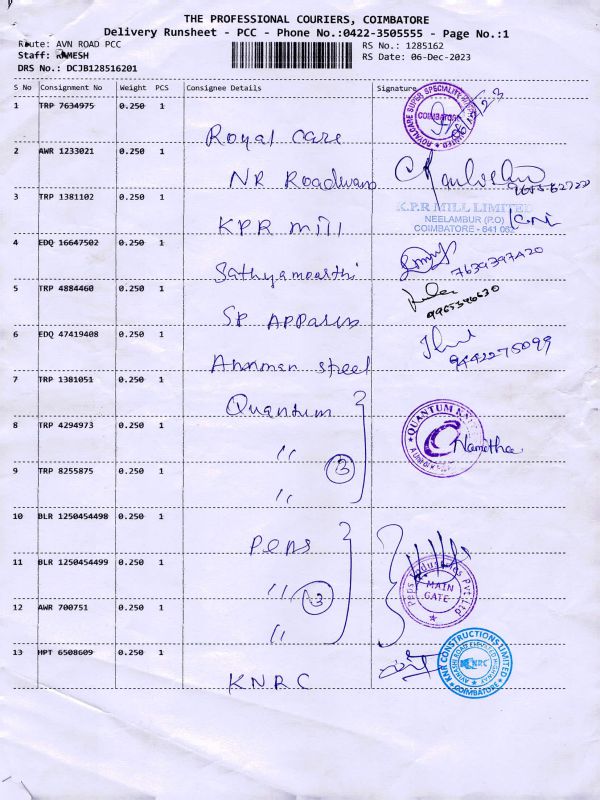 THE PROFESSIONAL COURIERS, COIMBATORE
Delivery Runsheet - PCC - Phone No.:0422-3505555 - Page No.:1
Route: AVN ROAD PCC
RS No.: 1285162
Staff: RAMESH
RS Date: 06-Dec-2023
DRS No.: DCJB128516201
S No Consignment No Weight PCS Consignee Details Signature
1 TRP 7634975 0.250 1
Royal Care
COIMBATORE
2 AWR 1233021 0.250 1
NR Roadways
3 TRP 1381102 0.250 1
KPR Mill
K.P.R MILL LIMITED
NEELAMBUR (P.O)
COIMBATORE - 641 062
4 EDQ 16647502 0.250 1
Sathyamoorthi
7639397420
5 TRP 4884460 0.250 1
SP Apparels
6 EDQ 47419408 0.250 1
steel
9442275099
7 TRP 1381051 0.250 1
Quantum
QUANTUM
8 TRP 4294973 0.250 1
"
3
Namitha
9 TRP 8255875 0.250 1
"
10 BLR 1250454498 0.250 1
Peps
11 BLR 1250454499 0.250 1
"
3
Peps Industries Pvt. Ltd
MAIN
GATE
12 AWR 700751 0.250 1
"
13 MPT 6508609 0.250 1
KNRC
KNR CONSTRUCTIONS LIMITED
KNRC
COIMBATORE